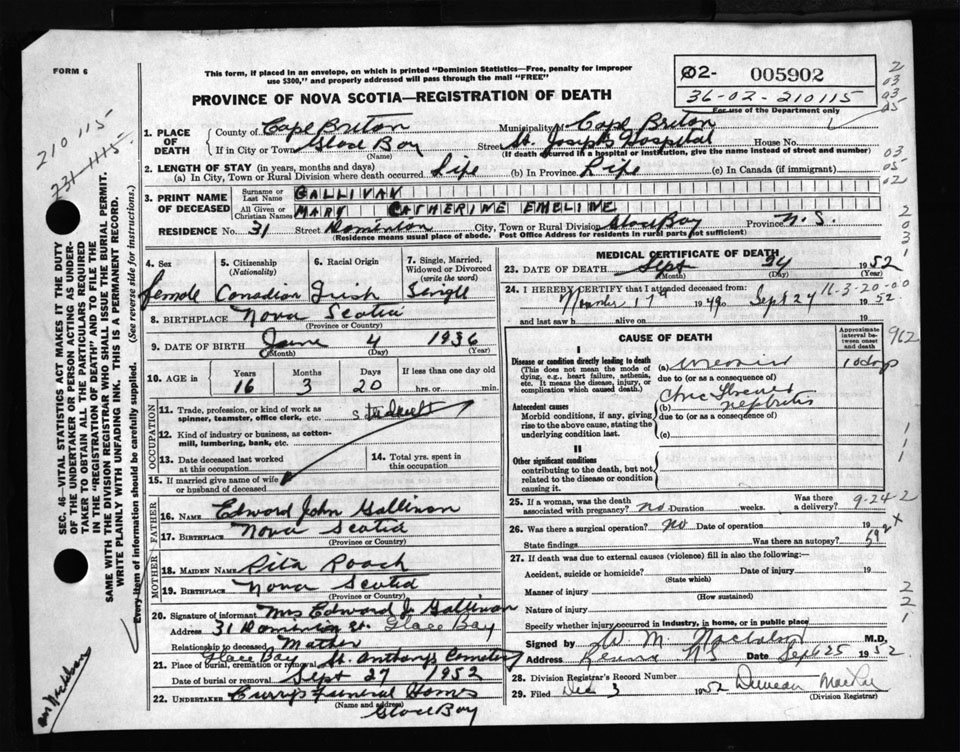 FORM 6
This form, if placed in an envelope, on which is printed "Dominion Statistics—Free, penalty for improper
use $300," and properly addressed will pass through the mail "FREE"
02- 005902
36-02-210115
For use of the Department only
PROVINCE OF NOVA SCOTIA—REGISTRATION OF DEATH
210 115
231-1115
1. PLACE OF DEATH
County of Cape Breton Municipality of Cape Breton
If in City or Town Glace Bay Street St. Joseph's Hospital House No.
(Name) (If death occurred in a hospital or institution, give the name instead of street and number)
2. LENGTH OF STAY (in years, months and days)
(a) In City, Town or Rural Division where death occurred Life (b) In Province Life (c) In Canada (if immigrant)
3. PRINT NAME OF DECEASED
Surname or Last Name GALLIVAN
All Given or Christian Names MARY CATHERINE EMELINE
RESIDENCE No. 31 Street Dominion City, Town or Rural Division Glace Bay Province N.S.
(Residence means usual place of abode. Post Office Address for residents in rural parts not sufficient)
4. Sex female
5. Citizenship (Nationality) Canadian
6. Racial Origin Irish
7. Single, Married, Widowed or Divorced (write the word) Single
8. BIRTHPLACE Nova Scotia
(Province or Country)
9. DATE OF BIRTH June 4 1936
(Month) (Day) (Year)
10. AGE in Years 16 Months 3 Days 20 If less than one day old hrs. or min.
OCCUPATION
11. Trade, profession, or kind of work as spinner, teamster, office clerk, etc.
12. Kind of industry or business, as cotton-mill, lumbering, bank, etc.
13. Date deceased last worked at this occupation
14. Total yrs. spent in this occupation
15. If married give name of wife or husband of deceased
FATHER
16. Name Edward John Gallivan
17. Birthplace Nova Scotia
(Province or Country)
MOTHER
18. Maiden Name Rita Roach
19. Birthplace Nova Scotia
(Province or Country)
20. Signature of informant Mrs Edward J. Gallivan
Address 31 Dominion St. Glace Bay
Relationship to deceased Mother
21. Place of burial, cremation or removal Glace Bay St. Anthony's Cemetery
Date of burial or removal Sept 27 1952
22. UNDERTAKER Curry's Funeral Home
(Name and address)
Glace Bay
MEDICAL CERTIFICATE OF DEATH
23. DATE OF DEATH Sept 24 1952
(Month) (Day) (Year)
24. I HEREBY CERTIFY that I attended deceased from: 11-3-20-00
1949 to Sept 24 1952
and last saw h alive on 19
CAUSE OF DEATH
Approximate interval between onset and death
962
I
Disease or condition directly leading to death
(This does not mean the mode of dying, e.g., heart failure, asthenia, etc. It means the disease, injury, or complication which caused death.)
(a) 10 days
due to (or as a consequence of)
Antecedent causes
Morbid conditions, if any, giving rise to the above cause, stating the underlying condition last.
(b) nephritis
due to (or as a consequence of)
(c)
II
Other significant conditions
contributing to the death, but not related to the disease or condition causing it.
25. If a woman, was the death associated with pregnancy? no Duration weeks. Was there a delivery?
9-24-2
26. Was there a surgical operation? no Date of operation 19
State findings Was there an autopsy?
592
27. If death was due to external causes (violence) fill in also the following:—
Accident, suicide or homicide? Date of injury 19
(State which)
Manner of injury
(How sustained)
Nature of injury
Specify whether injury occurred in industry, in home, or in public place
Signed by W. M. M.D.
Address N S Date Sept 25 1952
28. Division Registrar's Record Number
29. Filed Dec 3 1952 Duncan MacRae
(Division Registrar)
SEC. 46—VITAL STATISTICS ACT MAKES IT THE DUTY
OF THE UNDERTAKER OR PERSON ACTING AS UNDER-
TAKER TO OBTAIN ALL THE PARTICULARS REQUIRED
IN THE "REGISTRATION OF DEATH" AND TO FILE THE
SAME WITH THE DIVISION REGISTRAR WHO SHALL ISSUE THE BURIAL PERMIT.
WRITE PLAINLY WITH UNFADING INK. THIS IS A PERMANENT RECORD.
Every item of information should be carefully supplied. (See reverse side for instructions.)
2
03
03
05
03
05
02
2
0
3
1
1
1
2
2
1